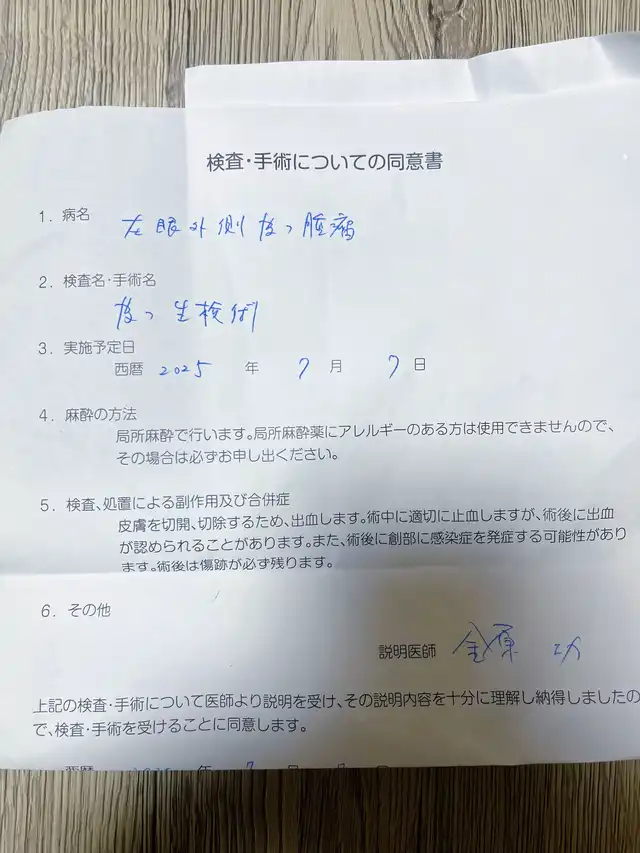 検査・手術についての同意書
1. 病名
左眼外側皮フ腫瘍
2. 検査名・手術名
皮フ生検術
3. 実施予定日
西暦 2025 年 7 月 7 日
4. 麻酔の方法
局所麻酔で行います。局所麻酔薬にアレルギーのある方は使用できませんので、
その場合は必ずお申し出ください。
5. 検査、処置による副作用及び合併症
皮膚を切開、切除するため、出血します。術中に適切に止血しますが、術後に出血
が認められることがあります。また、術後に創部に感染症を発症する可能性があり
ます。術後は傷跡が必ず残ります。
6. その他
説明医師 金原 功
上記の検査・手術について医師より説明を受け、その説明内容を十分に理解し納得しましたの
で、検査・手術を受けることに同意します。
西暦 2025 年 7 月 日